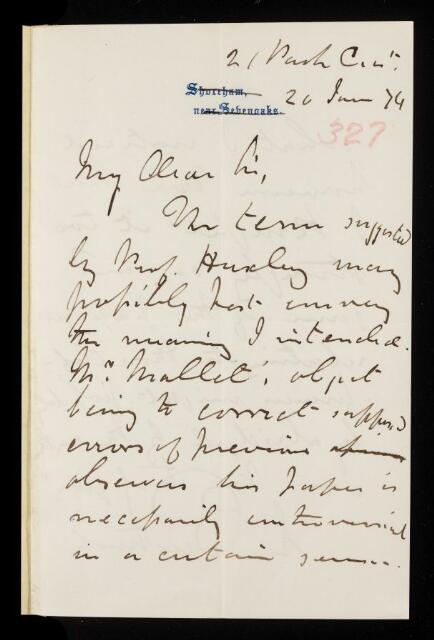 21 Park Cres^t.
Shoreham,
near Sevenoaks.
20 June 74
327
My Dear Sir,
The term suggested
by Prof. Huxley may
possibly not convey
the meaning I intended.
Mr. Mallet, object
being to correct supposed
errors of previous
observers his paper is
necessarily controversial
in a certain sense.